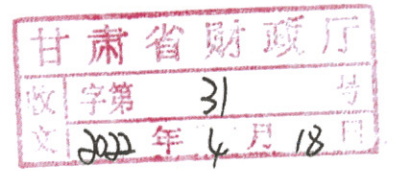 甘肃省财政厅
收文 字第 31 号
2022 年 4 月 18 日